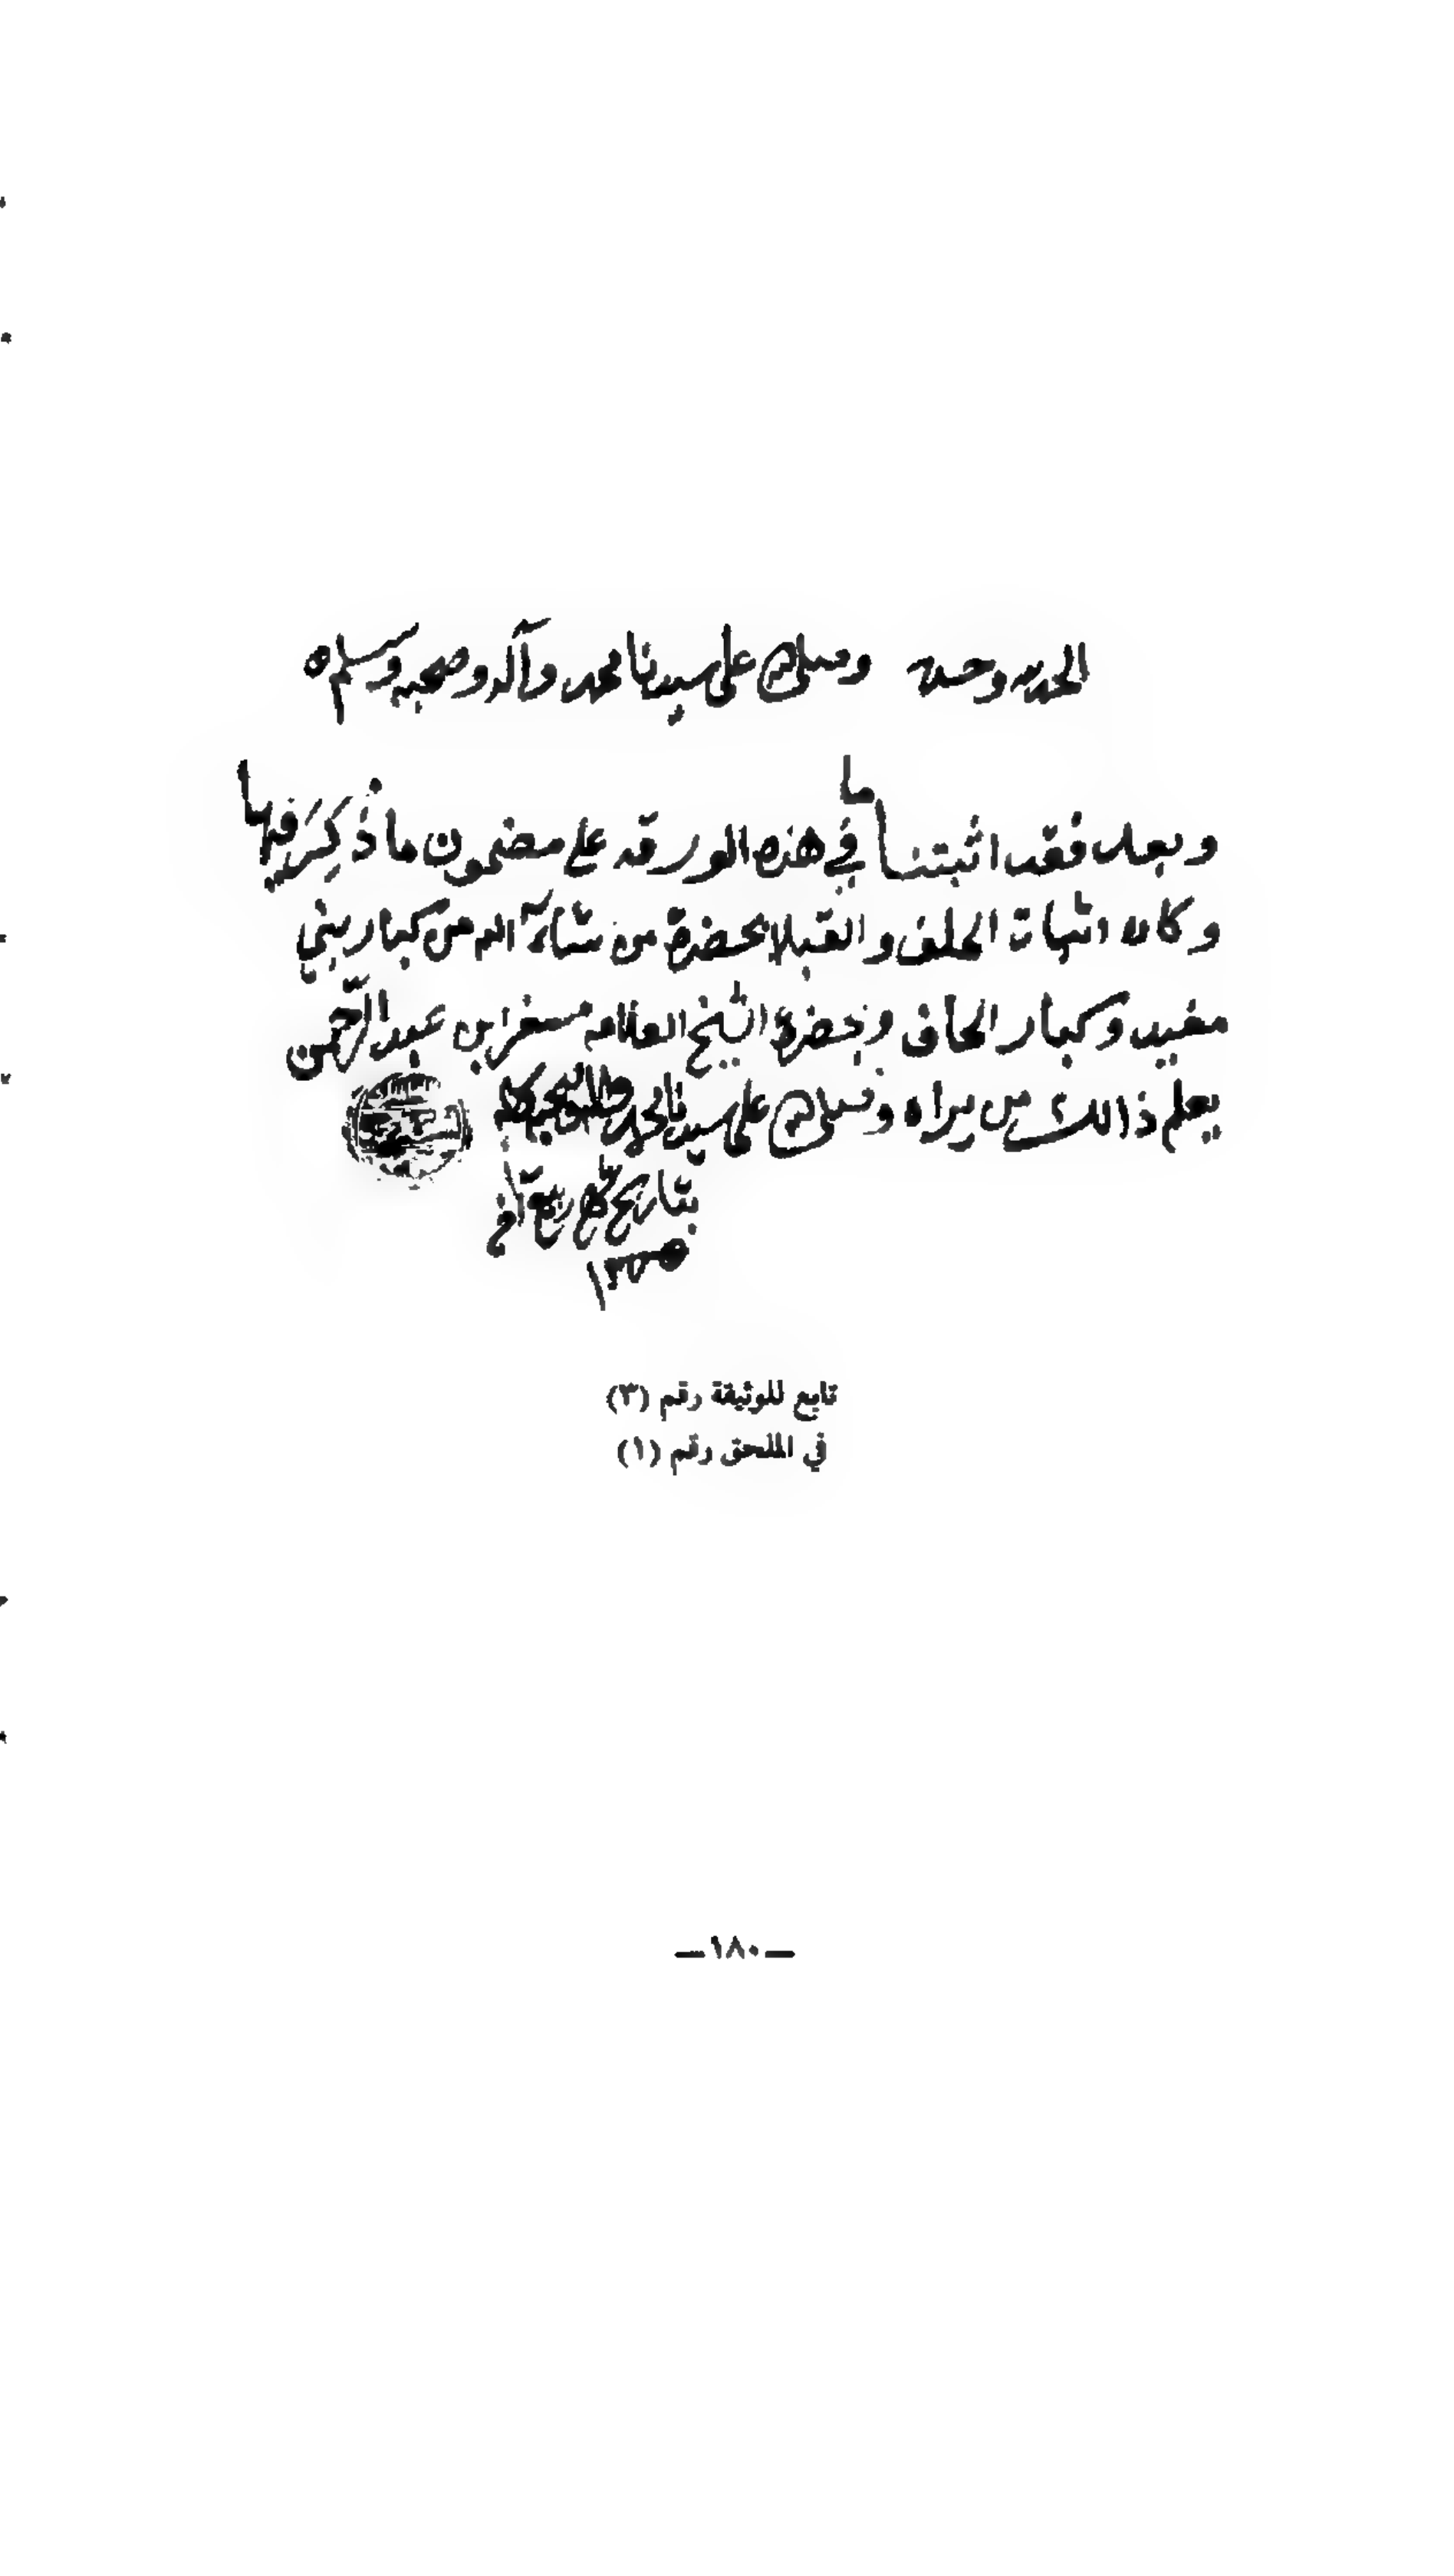 الحمد لله وحده وصلى الله على سيدنا محمد وآله وصحبه وسلم
وبعد فقد اثبتنا ما في هذه الورقه على مضمون ما ذُكِرَ فيها
وكان اثبات الحلف والقبلا بحضرة من شاء الله من كبار بني
مفيد وكبار الحلف وبحضرة الشيخ العلامه مسفر ابن عبد الرّحمن
يعلم ذالك من يراه وصلى الله على سيدنا محمد
بتاريخ ربيع آخر
١٣٥٥
تابع للوثيقة رقم (٣)
في الملحق رقم (١)
—١٨٠—